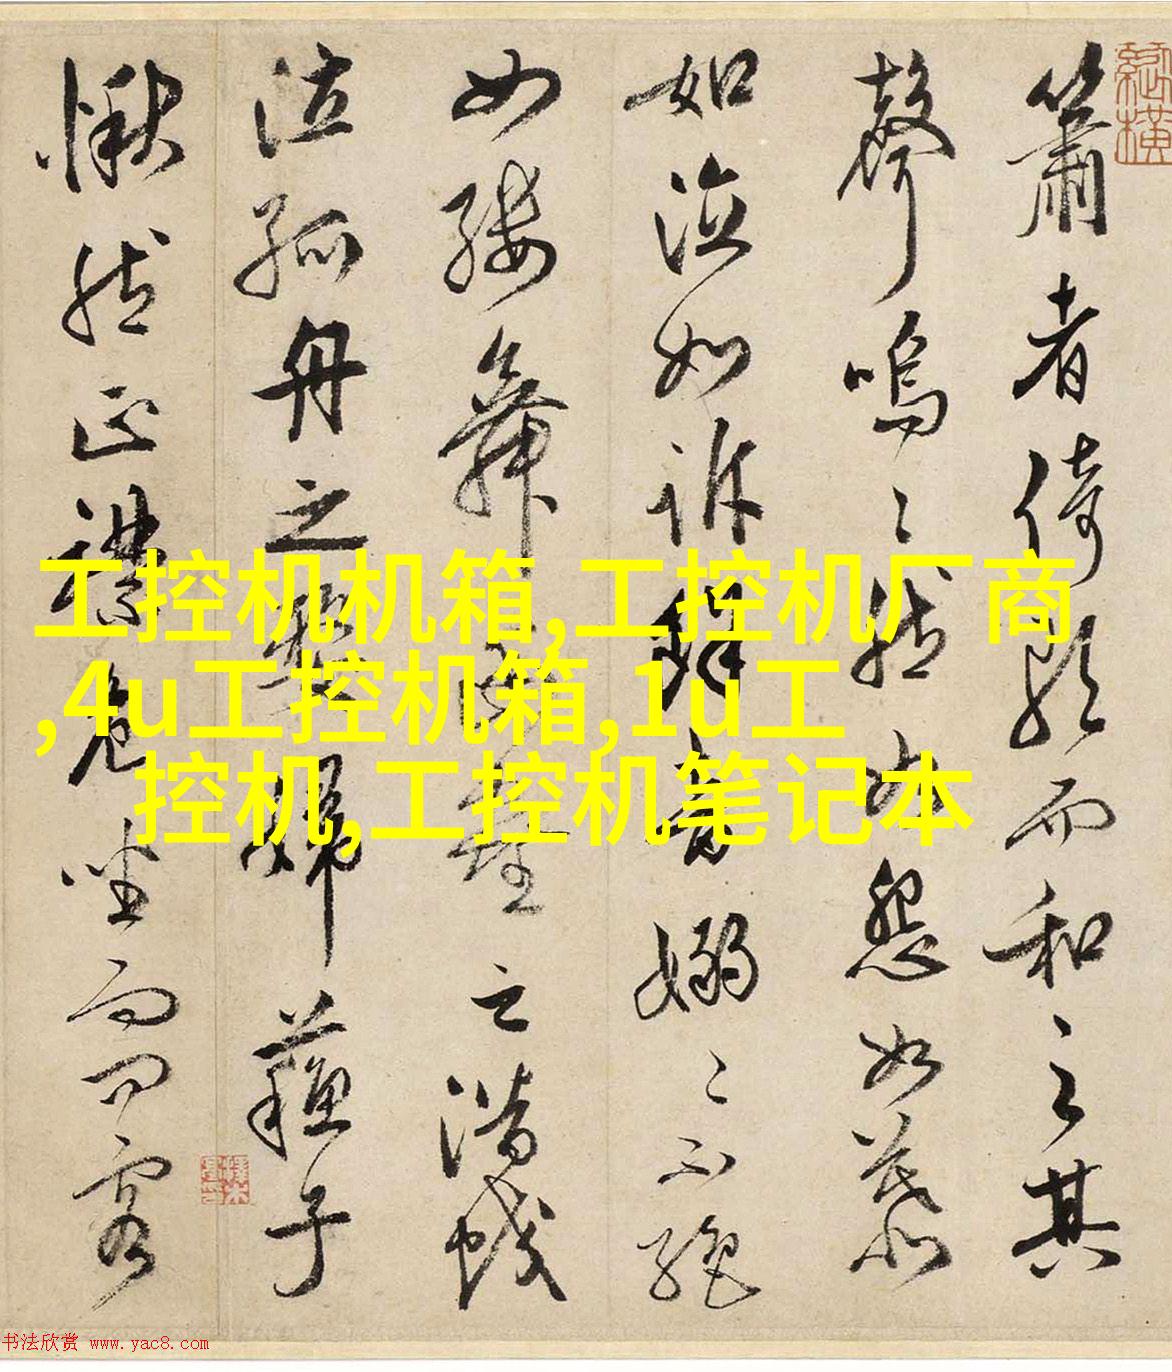 簫者倚歌而和之其
聲嗚〻然如怨如慕
如泣如訴餘音嫋〻不絕
如縷舞幽壑之潛蛟
泣孤舟之嫠婦蘇子
愀然正襟危坐而問客
工控机机箱,工控机厂商
,4u工控机箱,1u工
控机,工控机笔记本
书法欣赏 www.yac8.com